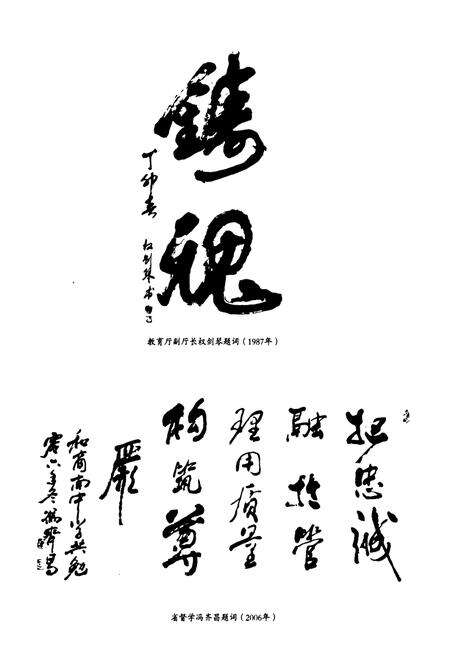 鑄
魂
丁卯春
权剑琴书
教育厅副厅长权剑琴题词（1987年）
把忠诚
融於管
理用质量
构筑尊
嚴
和商南中学共勉
零六年冬冯齊昌
省督学冯齐昌题词（2006年）